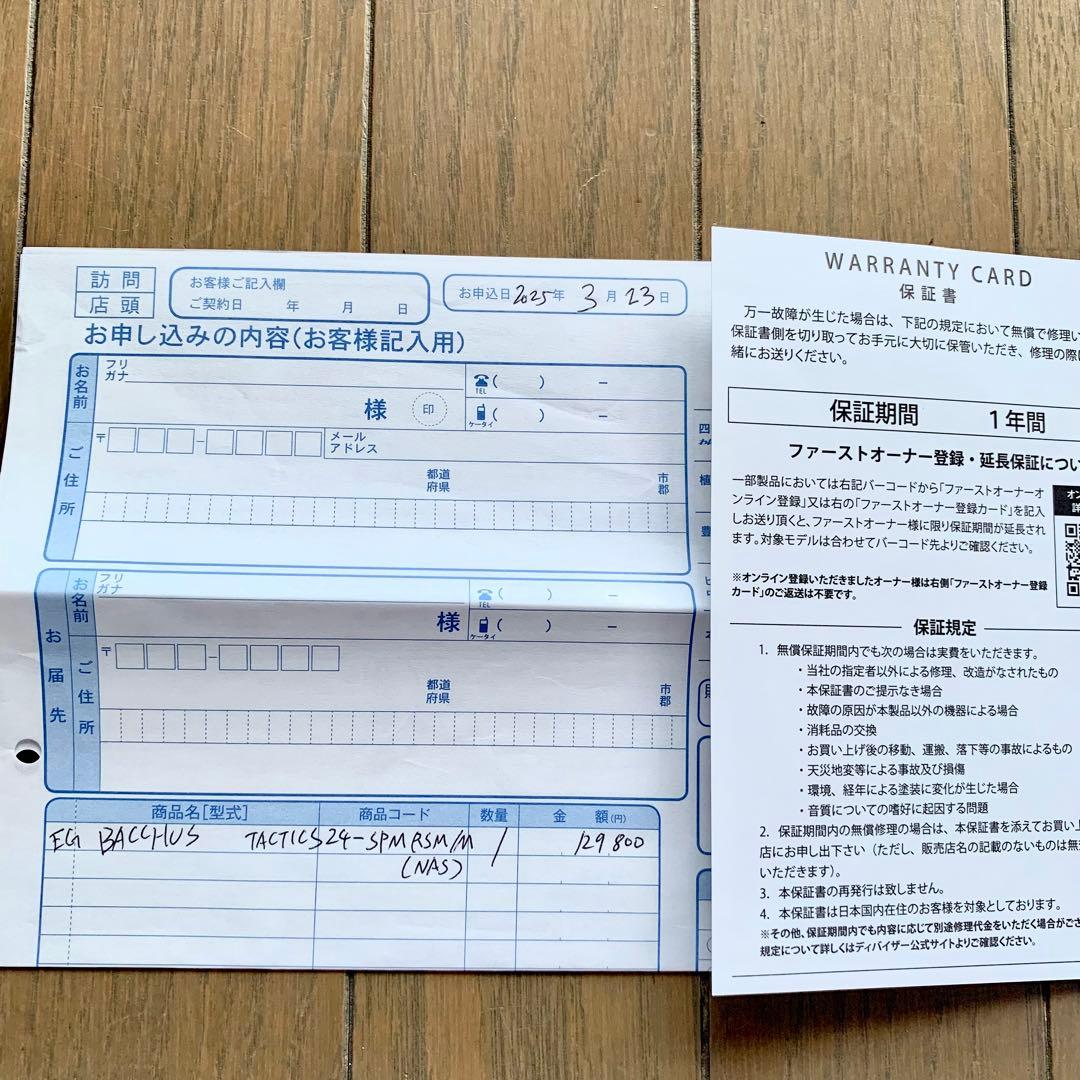 訪問
店頭
お客様ご記入欄
ご契約日 年 月 日
お申込日 2025年 3月 23日
お申し込みの内容(お客様記入用)
お名前
フリガナ
様
印
TEL ( ) −
ケータイ ( ) −
ご住所
〒 −
メールアドレス
都道府県
市郡
お届先
お名前
フリガナ
様
TEL ( ) −
ケータイ ( ) −
ご住所
〒 −
都道府県
市郡
商品名[型式] 商品コード 数量 金額(円)
EG BACCHUS TACTICS24-SPM RSM/M 1 129,800
(NAS)
四
植
豊
WARRANTY CARD
保証書
万一故障が生じた場合は、下記の規定において無償で修理い
保証書側を切り取ってお手元に大切に保管いただき、修理の際
緒にお送りください。
保証期間 1年間
ファーストオーナー登録・延長保証につい
一部製品においては右記バーコードから「ファーストオーナーオ
ンライン登録」又は右の「ファーストオーナー登録カード」を記入
しお送り頂くと、ファーストオーナー様に限り保証期間が延長され
ます。対象モデルは合わせてバーコード先よりご確認ください。
オン
詳
※オンライン登録いただきましたオーナー様は右側「ファーストオーナー登録
カード」のご返送は不要です。
保証規定
1. 無償保証期間内でも次の場合は実費をいただきます。
・当社の指定者以外による修理、改造がなされたもの
・本保証書のご提示なき場合
・故障の原因が本製品以外の機器による場合
・消耗品の交換
・お買い上げ後の移動、運搬、落下等の事故によるもの
・天災地変等による事故及び損傷
・環境、経年による塗装に変化が生じた場合
・音質についての嗜好に起因する問題
2. 保証期間内の無償修理の場合は、本保証書を添えてお買い上
店にお申し出下さい（ただし、販売店名の記載のないものは無
いただきます）。
3. 本保証書の再発行は致しません。
4. 本保証書は日本国内在住のお客様を対象としております。
※その他、保証期間内でも内容に応じて別途修理代金をいただく場合がござ
規定について詳しくはディバイザー公式サイトよりご確認ください。